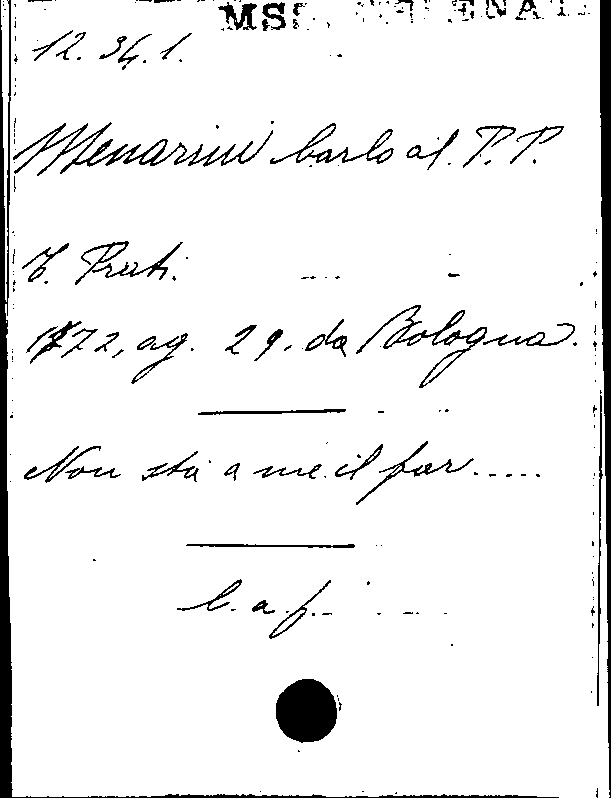 MSS.
12. 34. 1.
Menarini Carlo al P. P.
T. Prati.
1772, ag. 29. da Bologna.
Non sta a me il far.....
C. a f.